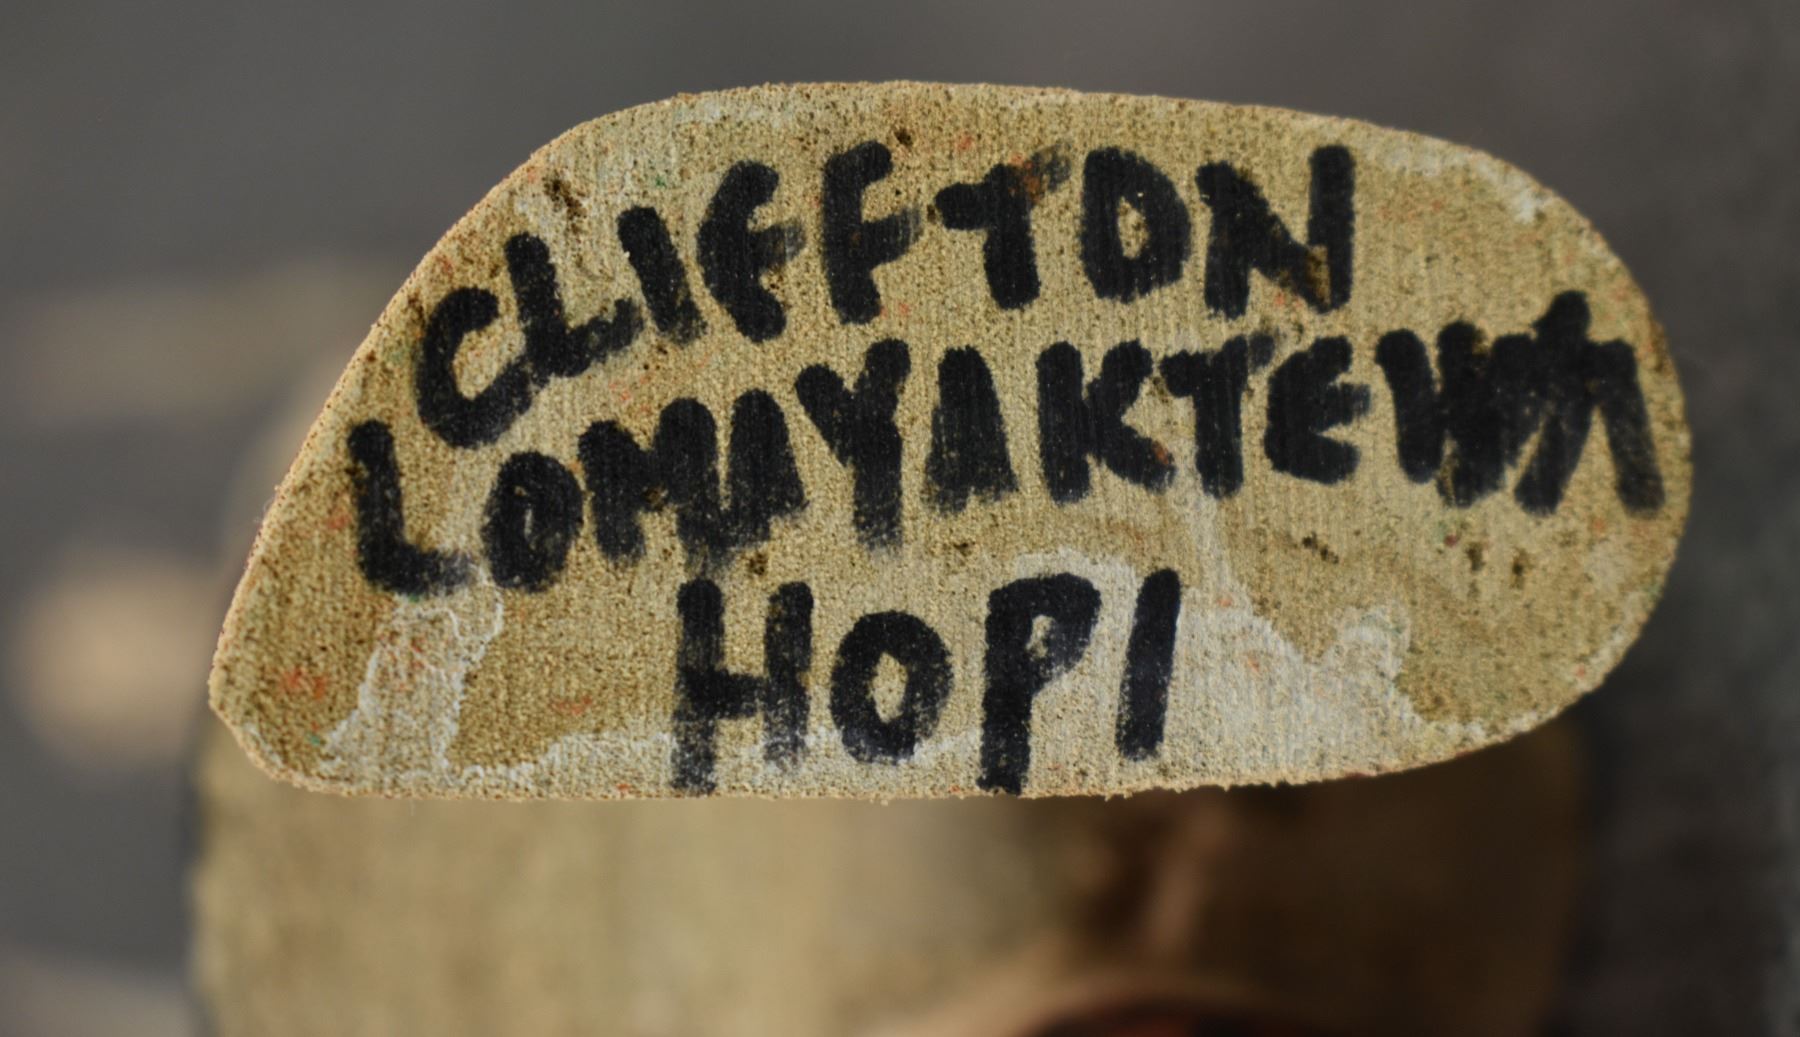 CLIFFTON
LOMAYAKTEWA
HOPI